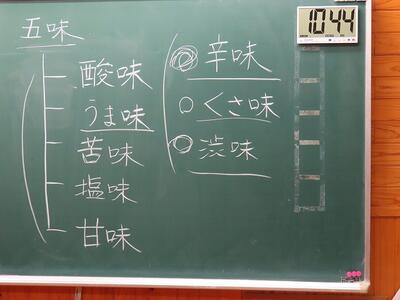 五味
酸味
うま味
苦味
塩味
甘味
辛味
くさ味
渋味
10 44